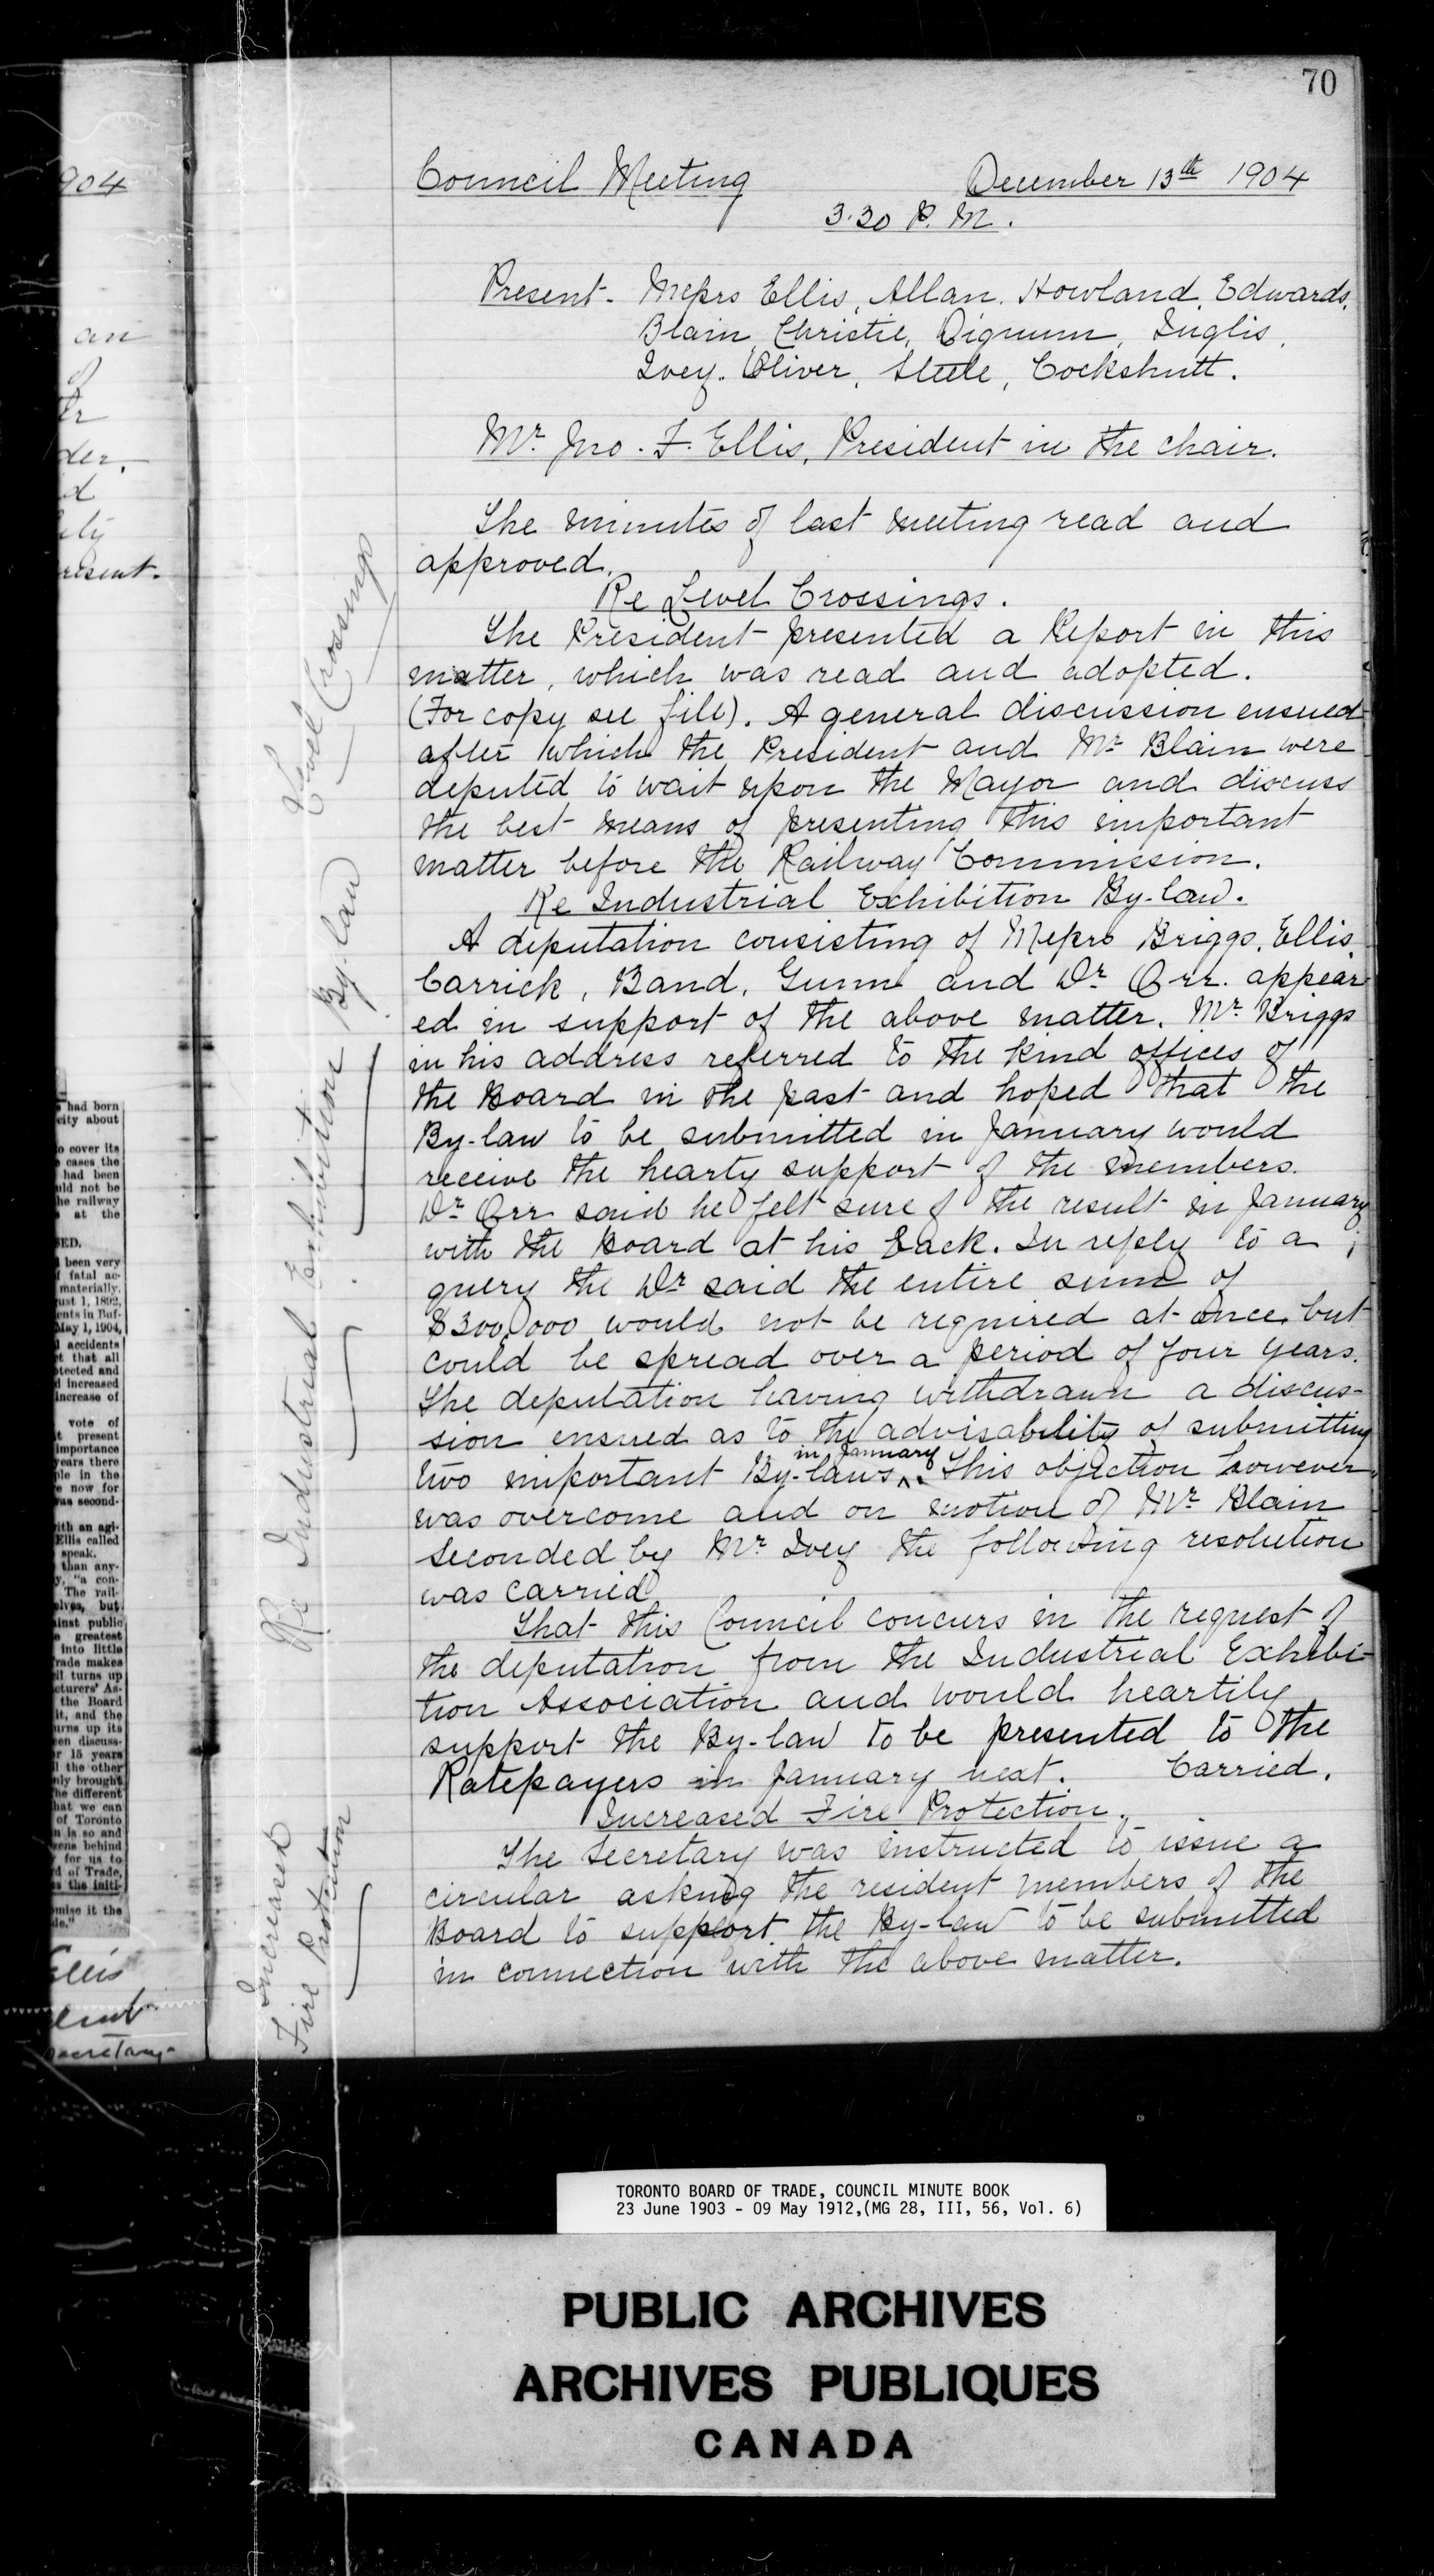 70
Council Meeting December 13th 1904
3.30 P. M.
Present - Messrs Ellis, Allan, Howland, Edwards,
Blain, Christie, Dignum, Inglis,
Ivey, Oliver, Steele, Cockshutt.
Mr. Jno. F. Ellis, President in the chair.
The minutes of last meeting read and
approved.
Re Level Crossings.
The President presented a Report in this
matter, which was read and adopted.
(For copy see file). A general discussion ensued
after which the President and Mr. Blain were
deputed to wait upon the Mayor and discuss
the best means of presenting this important
matter before the Railway Commission.
Re Industrial Exhibition By-law.
A deputation consisting of Messrs Briggs, Ellis,
Carrick, Band, Gunn and Dr. Orr. appear-
ed in support of the above matter. Mr. Briggs
in his address referred to the kind offices of
the Board in the past and hoped that the
By-law to be submitted in January would
receive the hearty support of the members.
Dr. Orr said he felt sure of the result in January
with the Board at his back. In reply to a
query the Dr. said the entire sum of
$300,000 would not be required at once, but
could be spread over a period of four years.
The deputation having withdrawn a discus-
sion ensued as to the advisability of submitting
two important By-laws in January. This objection however,
was overcome and on motion of Mr. Blain
seconded by Mr. Ivey the following resolution
was carried
That this Council concurs in the request of
the deputation from the Industrial Exhibi-
tion Association and would heartily
support the By-law to be presented to the
Ratepayers in January next. Carried.
Increased Fire Protection.
The Secretary was instructed to issue a
circular asking the resident members of the
Board to support the By-law to be submitted
in connection with the above matter.
Level Crossings
Re Industrial Exhibition By-law
Increased
Fire Protection
904
an
of
der.
d
resent.
had born
city about
o cover its
cases the
had been
uld not be
he railway
at the
SED.
been very
f fatal ac-
materially.
ust 1, 1892,
ents in Buf-
May 1, 1904,
accidents
t that all
otected and
d increased
increase of
vote of
t present
importance
years there
ple in the
e now for
was second-
ith an agi-
Ellis called
speak.
than any-
y, "a con-
The rail-
elves, but
ainst public
e greatest
into little
Trade makes
il turns up
cturers' As-
the Board
it, and the
urns up its
een discuss-
r 15 years
l the other
nly brought
he different
hat we can
of Toronto
n is so and
zens behind
for us to
d of Trade,
s the initi-
omise it the
de."
Ellis
dent
Secretary
TORONTO BOARD OF TRADE, COUNCIL MINUTE BOOK
23 June 1903 - 09 May 1912,(MG 28, III, 56, Vol. 6)
PUBLIC ARCHIVES
ARCHIVES PUBLIQUES
CANADA